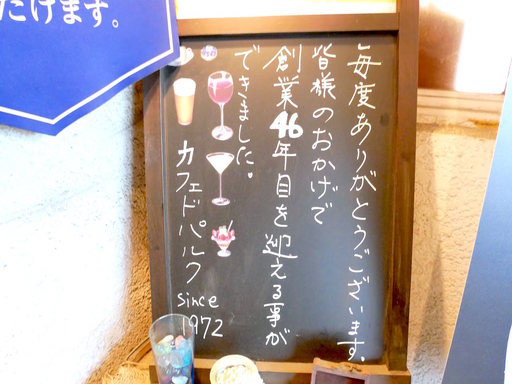 だけます。
毎度ありがとうございます。
皆様のおかげで
創業46年目を迎える事が
できました。
カフェドパルク
since
1972